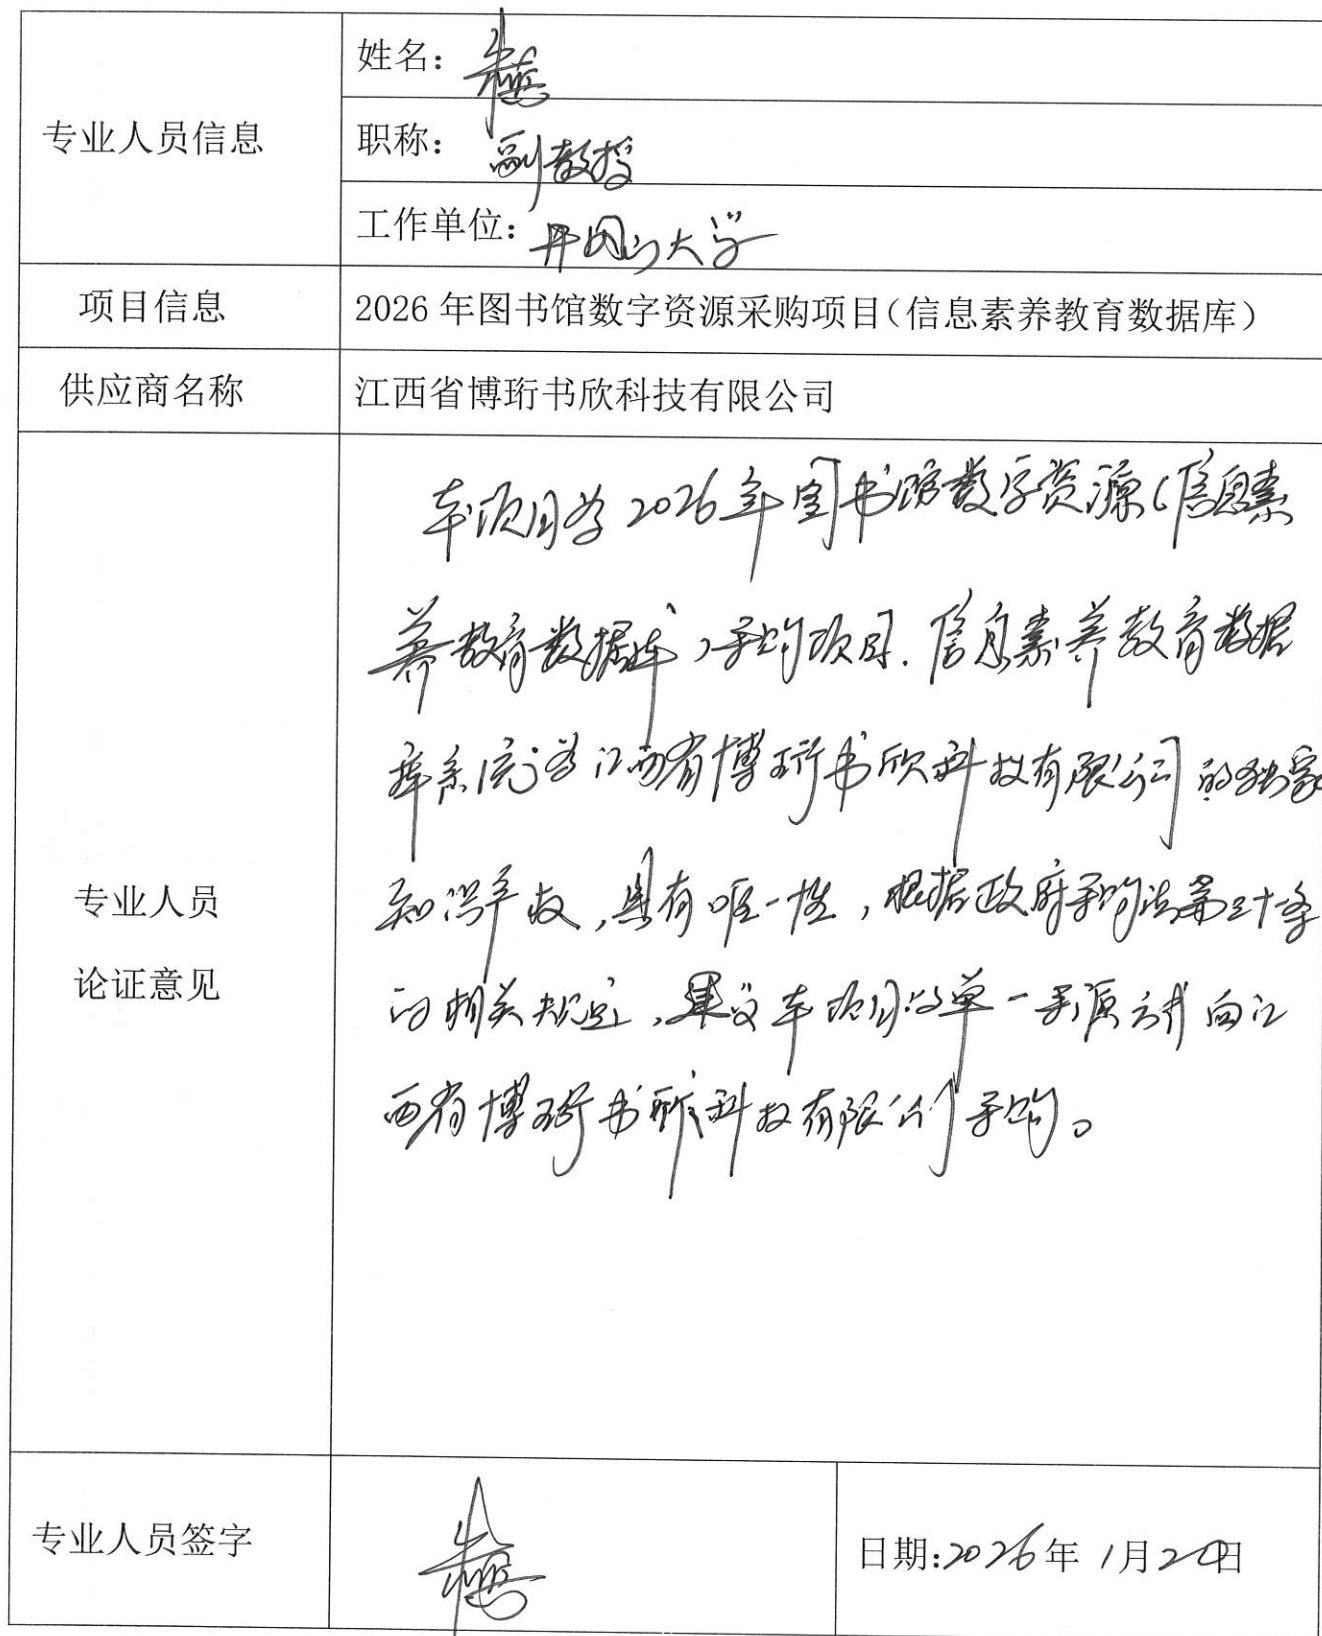 专业人员信息
姓名：
职称：副教授
工作单位：井冈山大学
项目信息
2026年图书馆数字资源采购项目（信息素养教育数据库）
供应商名称
江西省博珩书欣科技有限公司
专业人员
论证意见
本项目为2026年图书馆数字资源（信息素
养教育数据库）采购项目．信息素养教育数据
库系统为江西省博珩书欣科技有限公司的独家
知识产权，具有唯一性，根据政府采购法第三十一条
的相关规定，建议本项目以单一来源方式向江
西省博珩书欣科技有限公司采购。
专业人员签字
日期:2026年1月20日